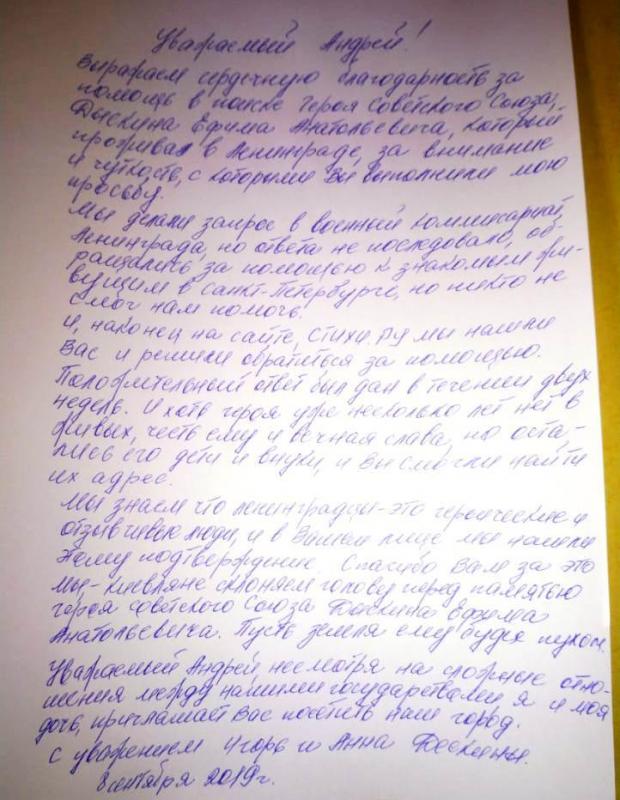 Уважаемый Андрей!
Выражаем сердечную благодарность за
помощь в поиске Героя Советского Союза,
Дыскина Ефима Анатольевича, который
проживал в Ленинграде, за внимание
и чуткость, с которыми Вы выполнили мою
просьбу.
Мы делали запрос в военный коммисариат,
Ленинграда, но ответа не последовало, об-
ращались за помощью к знакомым жи-
вущим в Санкт-Петербурге, но никто не
смог нам помочь.
И, наконец на сайте, Стихи.ру мы нашли
Вас и решили обратиться за помощью.
Положительный ответ был дан в течении двух
недель. И хоть героя уже несколько лет нет в
живых, честь ему и вечная слава, но оста-
лись его дети и внуки, и Вы смогли найти
их адрес.
Мы знаем что ленинградцы - это героические и
отзывчивые люди, и в Вашем лице мы нашли
этому подтверждение. Спасибо Вам за это
Мы - киевляне склоняем голову перед памятью
героя Советского Союза Дыскина Ефима
Анатольевича. Пусть земля ему будет пухом.
Уважаемый Андрей, несмотря на сложные отно-
шения между нашими государствами я и моя
дочь, приглашаем Вас посетить наш город.
С уважением Игорь и Анна
8 сентября 2019г.